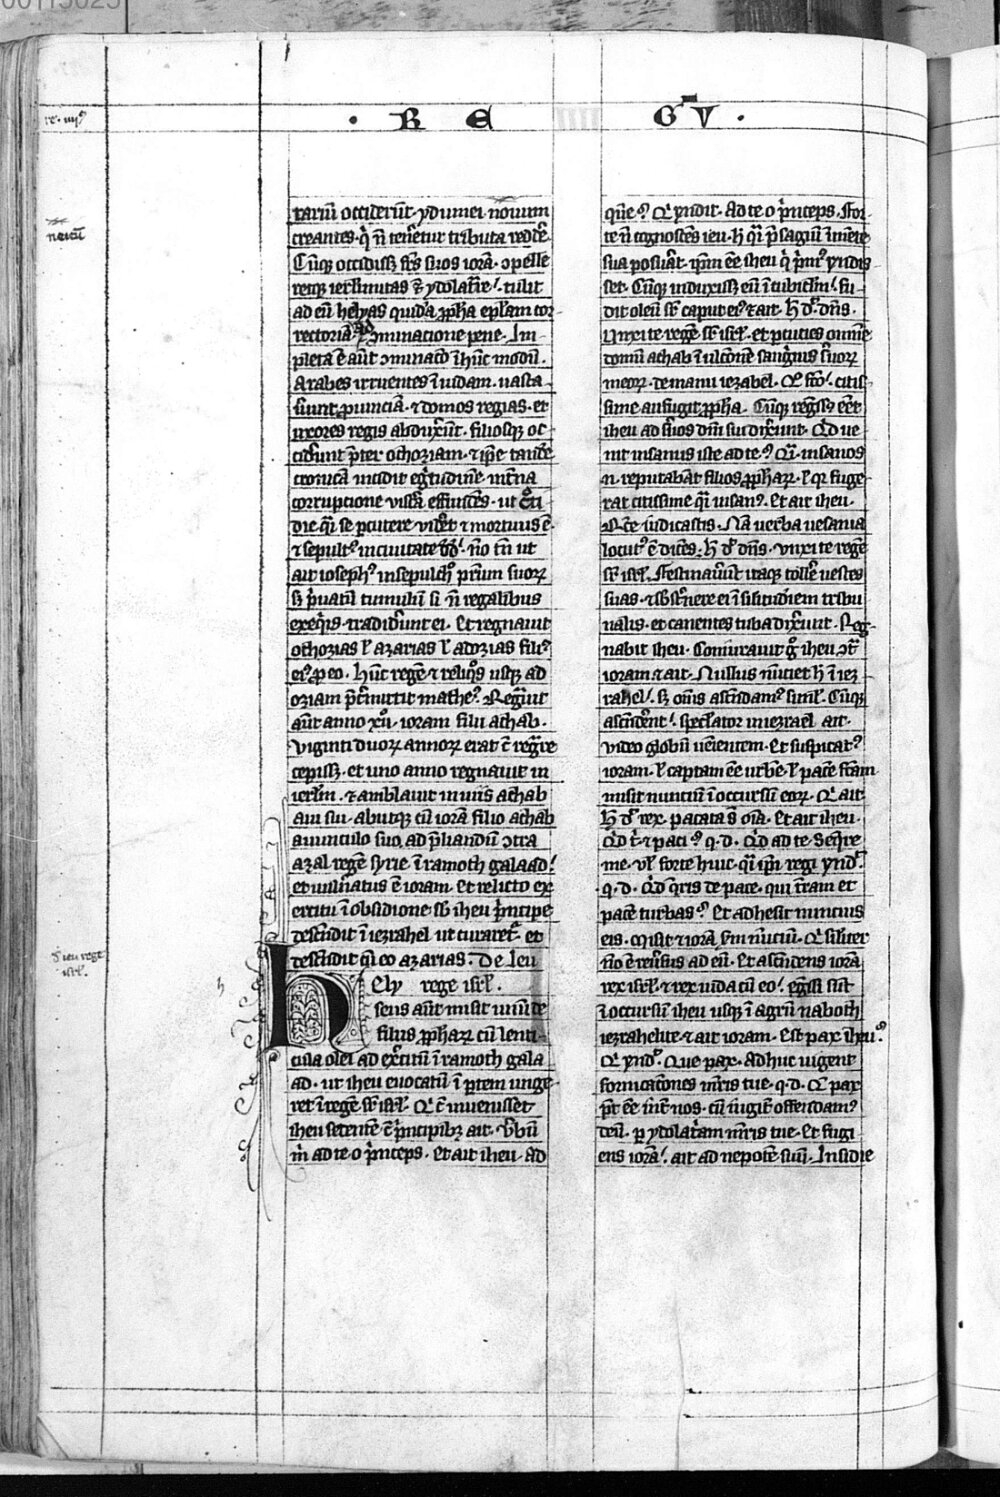 · R E G͞ V ·
re· iiij⁹
rariū occider̄t· ydumei nouum
creantes· q̇ n̄ tenerētur tributa redde᷒
Cūq; occidiss; fr̄s suos iorā· ↄpelle
retq; ierl̄mitas ⁊ ydolat̄re· tulit
ad eū helyas quidā ꝓph̄a ep̄lam cor
rectoriā ad ↄminacione pene· Im
pleta ē aūt ↄminacō ī hūc modū·
Arabes irruentes ī iudam· uasta
uer̄unt ꝓuinciā· ⁊ domos regias· et
uxores regis abduxer̄t· filiosq; oc
cider̄unt p̄ter ochoziam· ⁊ ip̄e tandē
cronicā incidit egritudinē int̄na
corrupcione
die q̄si se ꝑcutere mortuus ē
⁊ sepult⁹ in ciuitate dd̄· nō tn̄ ut
ait ioseph⁹ in sepulch⁰ pr̄um suoꝝ
s; p̄uatū tumulū si n̄ regalibus
exeq̇is· tradider̄unt ei· Et regnauit
ochozias ł azarias ł adozias fili⁹
ei⁹ ꝓ eo· hūc regē ⁊ reliq̊s usq; ad
oziam p̄t̄mittit mathe⁹· Regnauit
aūt anno xij· ioram filii achab·
Viginti duoꝝ annoꝝ erat c̄ regn̄re
cepiss;· et uno anno regnauit in
ierl̄m· ⁊ ambulauit in uiis achab
aui sui· abiitq; cū iorā filio achab
auunculo suo, ad p̄liandū ↄtra
azal regē syrie· ī ramoth galaad·
et uuln̄atus ē ioram· Et relicto ex
ercitu ī obsidione sb̄ iheu p̄ncipe
descendit ī iezrahel ut curaret᷒· et
descēdit cū eo azarias· De Ieu
hEly rege isrl̄·
seus aūt misit unū de
filiis ꝓphaꝝ cū lenti
cula olei ad ex̄citū ī ramoth gala
ad· ut iheu euocatū ī ꝑtem unge
ret ī regē sr̄ isrl̄· Q̇ c̄ inuenisset
iheu sedentē c̄ p̄ncipib; ait· Vb̄ū
m̄ ad te o p̄nceps· Et ait iheu· ad
que᷒· Q̇ rn̄dit· Ad te o p̄nceps· For
te n̄ cognoscēs ieu· h̄ q̄si p̄sagiū ī mēte
sua posuat· ip̄m eē iheu q̇ p̄m⁹ rn̄dis
set· Cūq; induxiss; eū ī cubicl̄m· fu
dit oleū sr̄ caput ei⁹ ⁊ ait· h̄ dt̄ dn̄s·
Unxi te regē sr̄ isrl̄· et ꝑcuties omnē
domū achab ī ulcōnē sanguis s̄uoꝝ
meoꝝ· de manu iezabel· Q̊ fc̄o· citis
sime aufugit ꝓph̄a· Cūq; reg̃ss; eēt
iheu ad s̄uos dn̄i sui dixer̄unt· Qd̄ ue
nit insanus iste ad te᷒ Q̄si· insanos
n̄· reputabāt filios ꝓphaꝝ· ł qr fuge
rat citissime q̄si insan⁹· Et ait iheu·
Rc̄e iudicastis· Nā uerba uesania
locut⁹ ē dices· h̄ dt̄ dn̄s· Vnxi te regē
sr̄ isrl̄· Festinauer̄t itaq; tolle᷒ uestes
suas· ⁊ sb̄st̄nere ei ī silitudinem tribu
nalis· et canentes tuba dixer̄unt· Reg
nabit iheu· Coniurauit g° iheu ↄt̄
ioram ⁊ ait· Nullus nūciet h̄ ī iez
rahel· s; oms ascēdam⁹ simł· Cūq;
ascēdent· speclator in iezrael ait·
Video globū ueīentem· Et suspicat⁹
ioram· ł captam eē urbē· ł pace fc̄am
misit nunciū ī occursū eoꝝ· Q̇ ait
h̄ dt̄ rex· pacata s̄ oīa· Et ait iheu·
Qd̄ t̄ ⁊ paci᷒ q· d· Qd̄ ad te Seq̄re
me· Vł forte huic· q̄si ip̄i regi rn̄dt̄
·q· d· Qd̄ q̄ris de pace· qui t̄ram et
pacē turbas᷒ Et adhesit nuncius
eis· Misit ⁊ iorā sm̄ nūciū· Q̇ silit̄er
nō ē reu̇sus ad eū· Et ascendens iorā
rex isrl̄· ⁊ rex iuda cū eo· eg̃ssi sūt
ī occursū iheu usq; ī agrū naboth
iezrahelite ⁊ ait ioram· Est pax iheu᷒
Q̇ rn̄dt̄· Que pax· Adhuc uigent
fornicacōnes mr̄is tue· q· d· Q̄ pax
pt̄ eē int̄ nos· cū iugit᷒ offendam⁹
deū· ꝑ ydolat̄am mr̄is tue· Et fugi
ens iorā· ait ad nepotē suū· Insidie